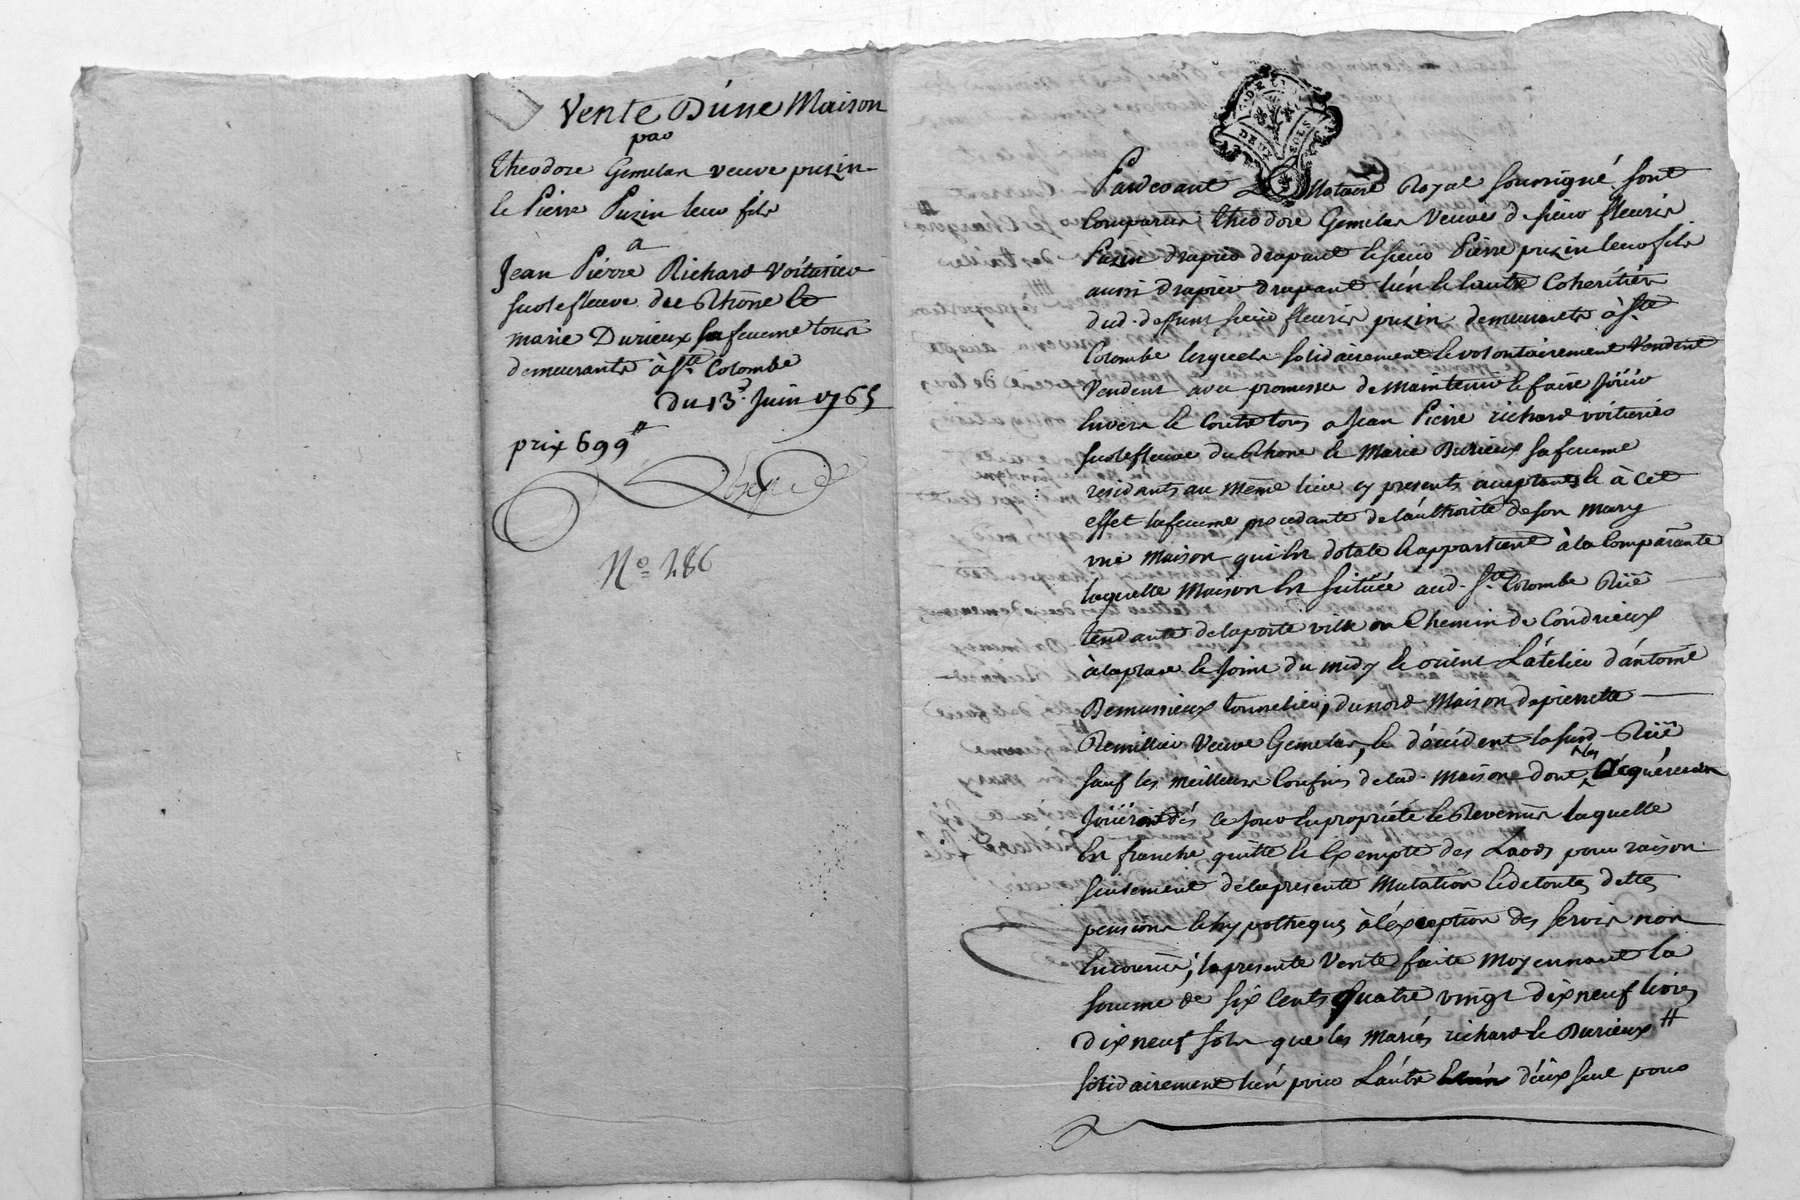 Vente D'une Maison
par
theodore Gemelas veuve puzin
le Pierre Puzin leur fils
a
Jean Pierre Richard Voiturier
sur le fleuve du Rhone le
marie Durieux sa femme tous
demeurants à Ste Colombe
du 13e Juin 1765
prix 699#
No 286
DEUX SOLS
Pardevant Le Notaire Royal soussigné sont
Comparus; theodore Gemelas Veuve de sieur fleuris
Puzin drapier drapant le sieur Pierre puzin leur fils
aussi drapier drapant l'un le l'autre Coheritier
dud. deffunt sieur fleuris puzin demeurants à Ste
Colombe lesquels solidairement le volontairement Vendent
Vendent avec promesse de maintenir le faire Joüir
Envers le Contre tous a Jean Pierre richard voiturier
sur le fleuve du Rhone le Marie Durieux sa femme
residants au même lieu cy presents acceptants le à cet
effet la femme procedante de l'authorité de son mary
une Maison qui Est dotale le appartient à la Comparante
laquelle Maison Est scituée aud. Ste Colombe Rüe
tendante de la porte ville au Chemin de Condrieux
à la place le Joint du midy le orient L'atelier d'antoine
Demussieux tonnelier, du nord Maison de pierrette
Remillier Veuve Gemelas, le d'occident la susd. Rüe
sauf les meilleurs Confins de lad. Maison dont les acquéreurs
Joüiront dés ce jour En propriété le Revenus laquelle
Est franche quitte le Exempte des Laods pour raison
seulement de la presente Mutation le de toutes dettes
pensions le hypotheques à l'éxception des servis non
Encourus; la presente Vente faite moyennant la
somme de six Cents quatre vingt dix neuf livres
dix neuf sols que les mariés richard le Durieux #
solidairement l'un pour L'autre d'eux seul pour